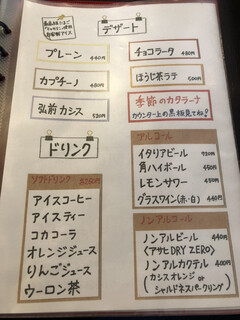 デザート
自家製アイス
プレーン 440円
カプチーノ 480円
弘前カシス 520円
チョコラータ 480円
ほうじ茶ラテ 520円
季節のカタラーナ
カウンター上の黒板見てね!
ドリンク
ソフトドリンク
アイスコーヒー
アイスティー
コカコーラ
オレンジジュース
りんごジュース
ウーロン茶
アルコール
イタリアビール
角ハイボール 450円
レモンサワー 450円
グラスワイン(赤・白) 440円
ノンアルコール
ノンアルビール 440円
(アサヒDRY ZERO)
ノンアルカクテル 400円
(カシスオレンジ or
シャルドネスパークリング)